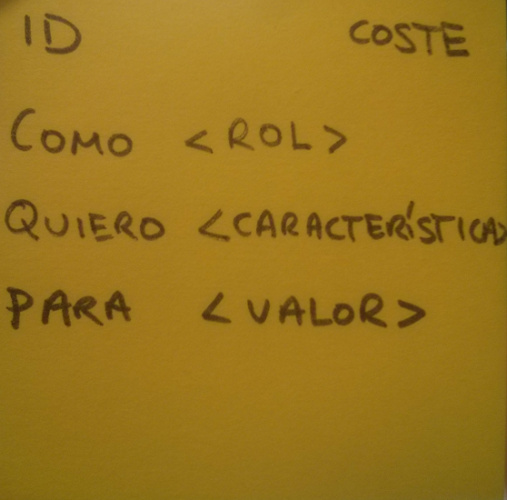 ID COSTE
COMO <ROL>
QUIERO <CARACTERÍSTICA>
PARA <VALOR>